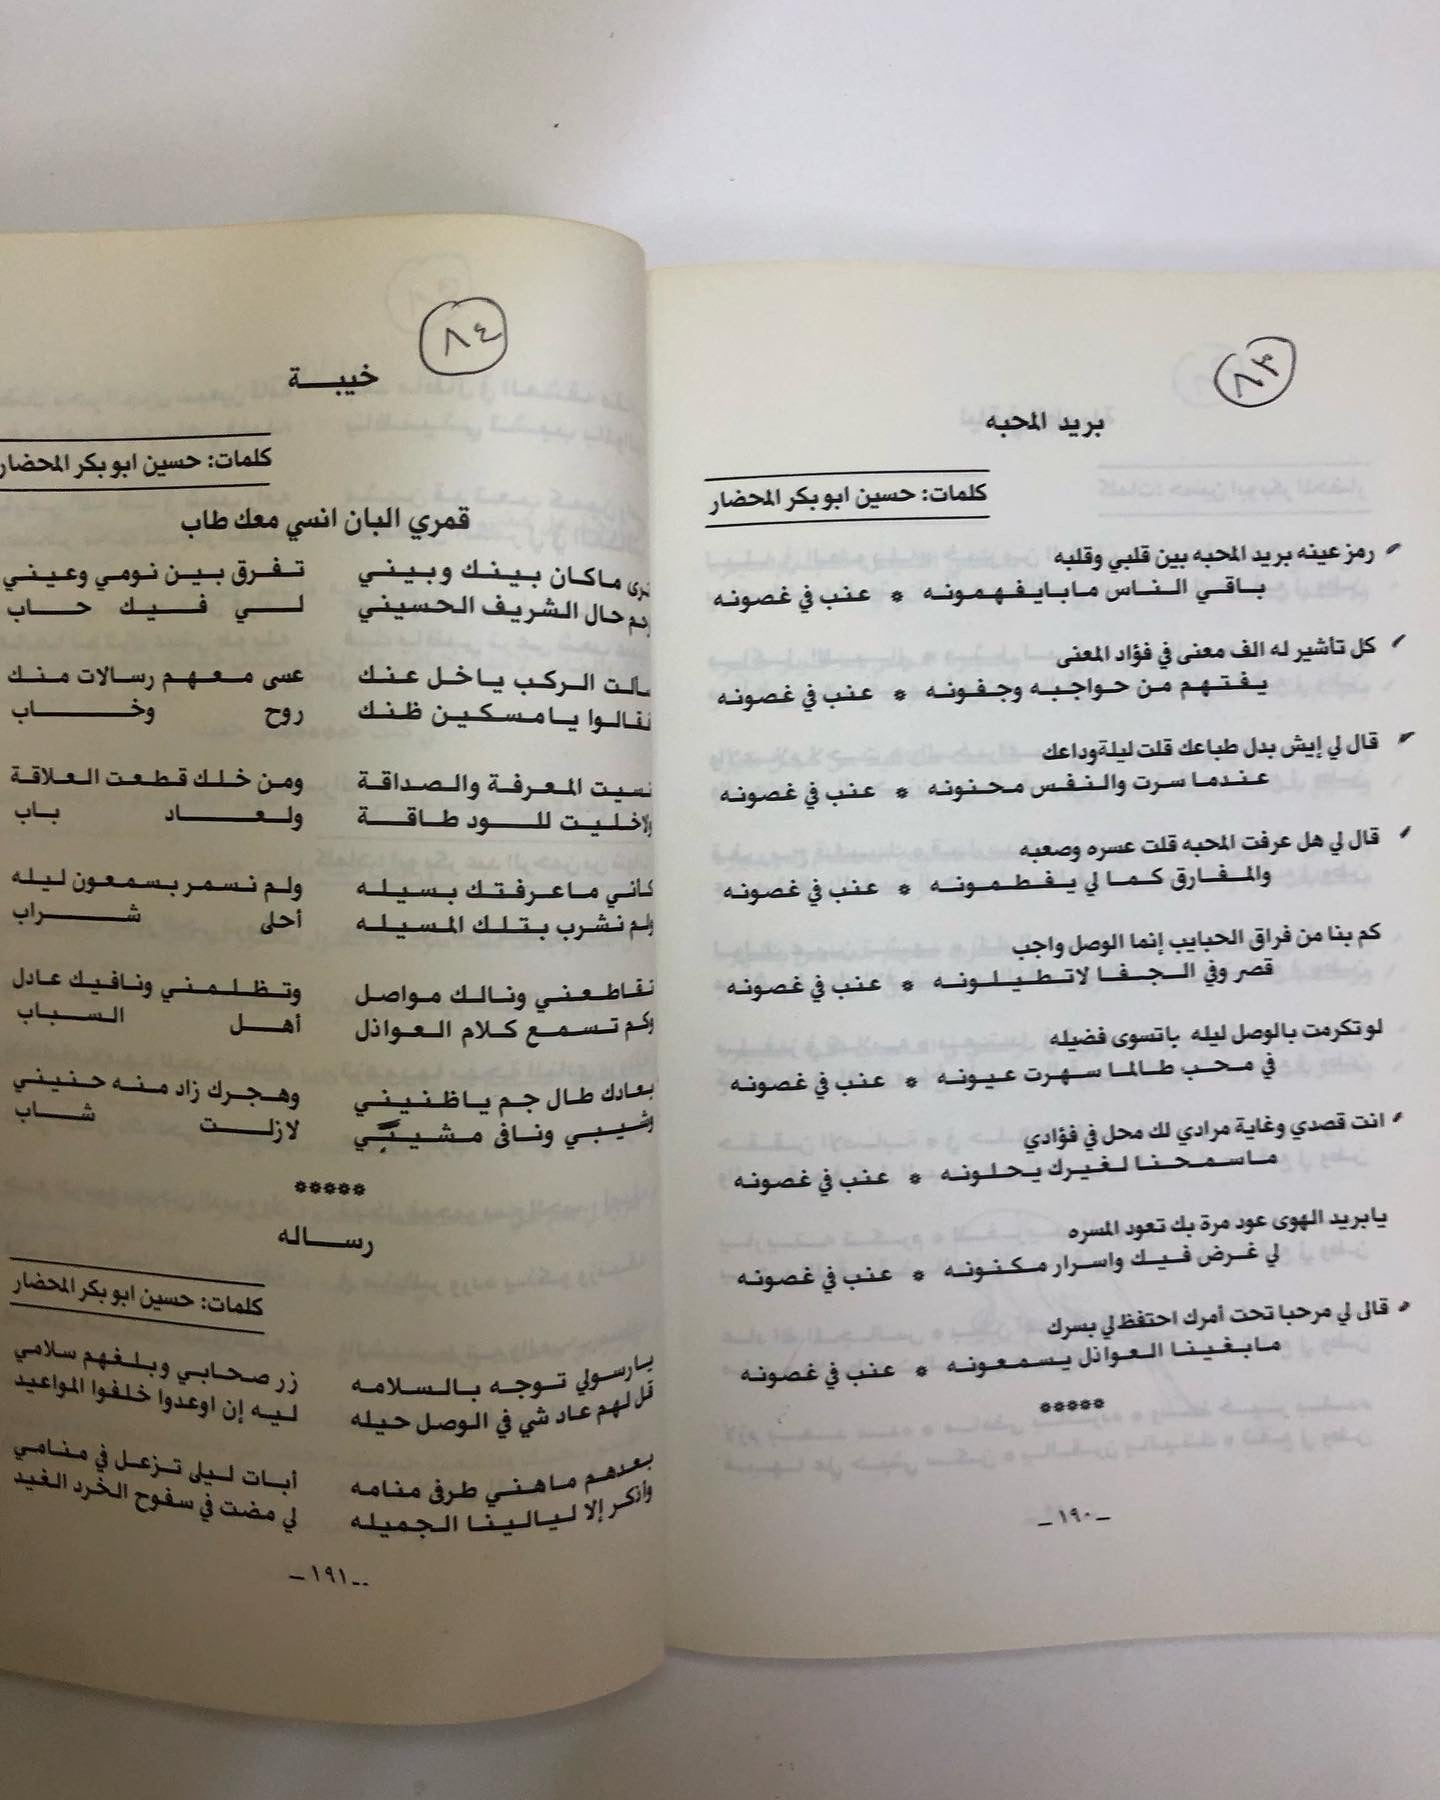 ٨٣
بريد المحبه
كلمات: حسين ابو بكر المحضار
رمز عينه بريد المحبه بين قلبي وقلبه
باقي الناس مابايفهمونه * عنب في غصونه
كل تأشير له الف معنى في فؤاد المعنى
يفتهم من حواجبه وجفونه * عنب في غصونه
قال لي إيش بدل طباعك قلت ليلةوداعك
عندما سرت والنفس محنونه * عنب في غصونه
قال لي هل عرفت المحبه قلت عسره وصعبه
والمفارق كما لي يفطمونه * عنب في غصونه
كم بنا من فراق الحبايب إنما الوصل واجب
قصر وفي الجفا لاتطيلونه * عنب في غصونه
لو تكرمت بالوصل ليله باتسوى فضيله
في محب طالما سهرت عيونه * عنب في غصونه
انت قصدي وغاية مرادي لك محل في فؤادي
ماسمحنا لغيرك يحلونه * عنب في غصونه
يابريد الهوى عود مرة بك تعود المسره
لي غرض فيك واسرار مكنونه * عنب في غصونه
قالى لي مرحبا تحت أمرك احتفظ لي بسرك
مابغينا العواذل يسمعونه * عنب في غصونه
*****
ــ ١٩٠ ــ
٨٤
خيبة
كلمات: حسين ابو بكر المحضار
قمري البان انسي معك طاب
ماكان بينك وبيني تفرق بين نومي وعيني
حال الشريف الحسيني لي فيك حاب
الركب ياخل عنك عسى معهم رسالات منك
فقالوا يامسكين ظنك روح وخاب
نسيت المعرفة والصداقة ومن خلك قطعت العلاقة
ولاخليت للود طاقة ولعاد باب
كأني ماعرفتك بسيله ولم نسمر بسمعون ليله
ولم نشرب بتلك المسيله أحلى شراب
تقاطعني ونالك مواصل وتظلمني ونافيك عادل
وكم تسمع كلام العواذل أهل السباب
بعادك طال جم ياظنيني وهجرك زاد منه حنيني
وشيبي ونافى مشيبي لازلت شاب
*****
رساله
كلمات: حسين ابو بكر المحضار
يارسولي توجه بالسلامه زر صحابي وبلغهم سلامي
قل لهم عاد شي في الوصل حيله ليه إن اوعدوا خلفوا المواعيد
بعدهم ماهني طرفى منامه أبات ليلى تزعل في منامي
وأذكر إلا ليالينا الجميله لي مضت في سفوح الخرد الغيد
ــ ١٩١ ــ